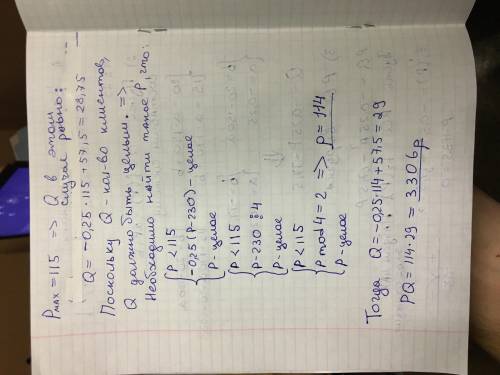 P_MAX = 115 => Q в этом
случае равно:
Q = -0,25·115+57,5 = 28,75
Поскольку Q - кол-во клиентов,
Q должно быть целым. =>
Необходимо найти такое p, что:
{ P < 115
-0,25(P-230) - целое
P - целое
{ P < 115
P-230 ⋮ 4
P - целое
{ P < 115
P mod 4 = 2 => p = 114
P - целое
Тогда Q = -0,25·114+57,5 = 29
PQ = 114·29 = 3306 р